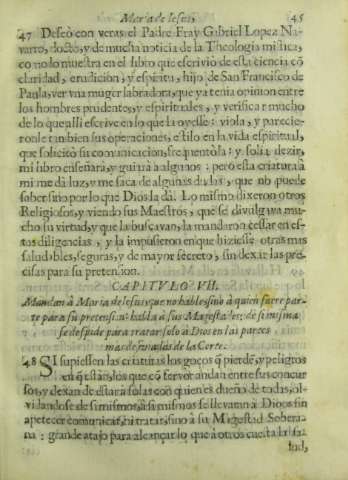 Maria de Iesus, 45
47 Deseò con veras el Padre Fray Gabriel Lopez Na-
uarro, docto, y de mucha noticia de la Theologia mistica,
co nolo muestra en el libro que escrivio de esta ciencia cõ
claridad, erudicion, y espiritu, hijo de San Francisco de
Paula, ver vna muger labradora, que ya tenia opinion entre
los hombres prudentes, y espirituales, y verifica r mucho
de lo que alli escrive en lo que la oyesse: viola, y parecie-
ronle tan bien sus operaciones, estilo en la vida espiritual,
que solicitò su comunicacion, frequentòla: y solia dezir,
mi libro enseñarà, y guiarà à algunos: pero esta criatura à
mi me dà luz, y me saca de algunas dudas, que no puede
saber sino por lo que Dios la dà. Lo mismo dixeron otros
Religiosos, y viendo sus Maestros, que se divulgava mu-
cho su virtud, y que la buscavan, la mandaron cessar en es-
tas diligencias, y la impusieron en que hiziesse otras mas
saludables, seguras, y de mayor secreto, sin dexar las pre-
cisas para su pretension.
CAPITVLO VII.
Mandan à Maria de Iesus, que no hable sino à quien fuere par-
te para su pretension: habla à sus Magestades: de si misma
se despide para tratar solo à Dios en las partes
mas desiertas de la Corte.
48 SI supiessen las criaturas los goços q̃ pierdẽ, y peligros
en q̃ estàn, los que cõ fervor andan entre sus concur
sos, y dexan de estar à solas con quien es dueño de todas, ol-
vidandose de si mismos, à si mismos se llevaran à Dios sin
apetecer comunicar, ni tratar, sino à su Magestad Sobera-
na: grande atajo para alcançar lo que à otros cuesta la sa-
lud,